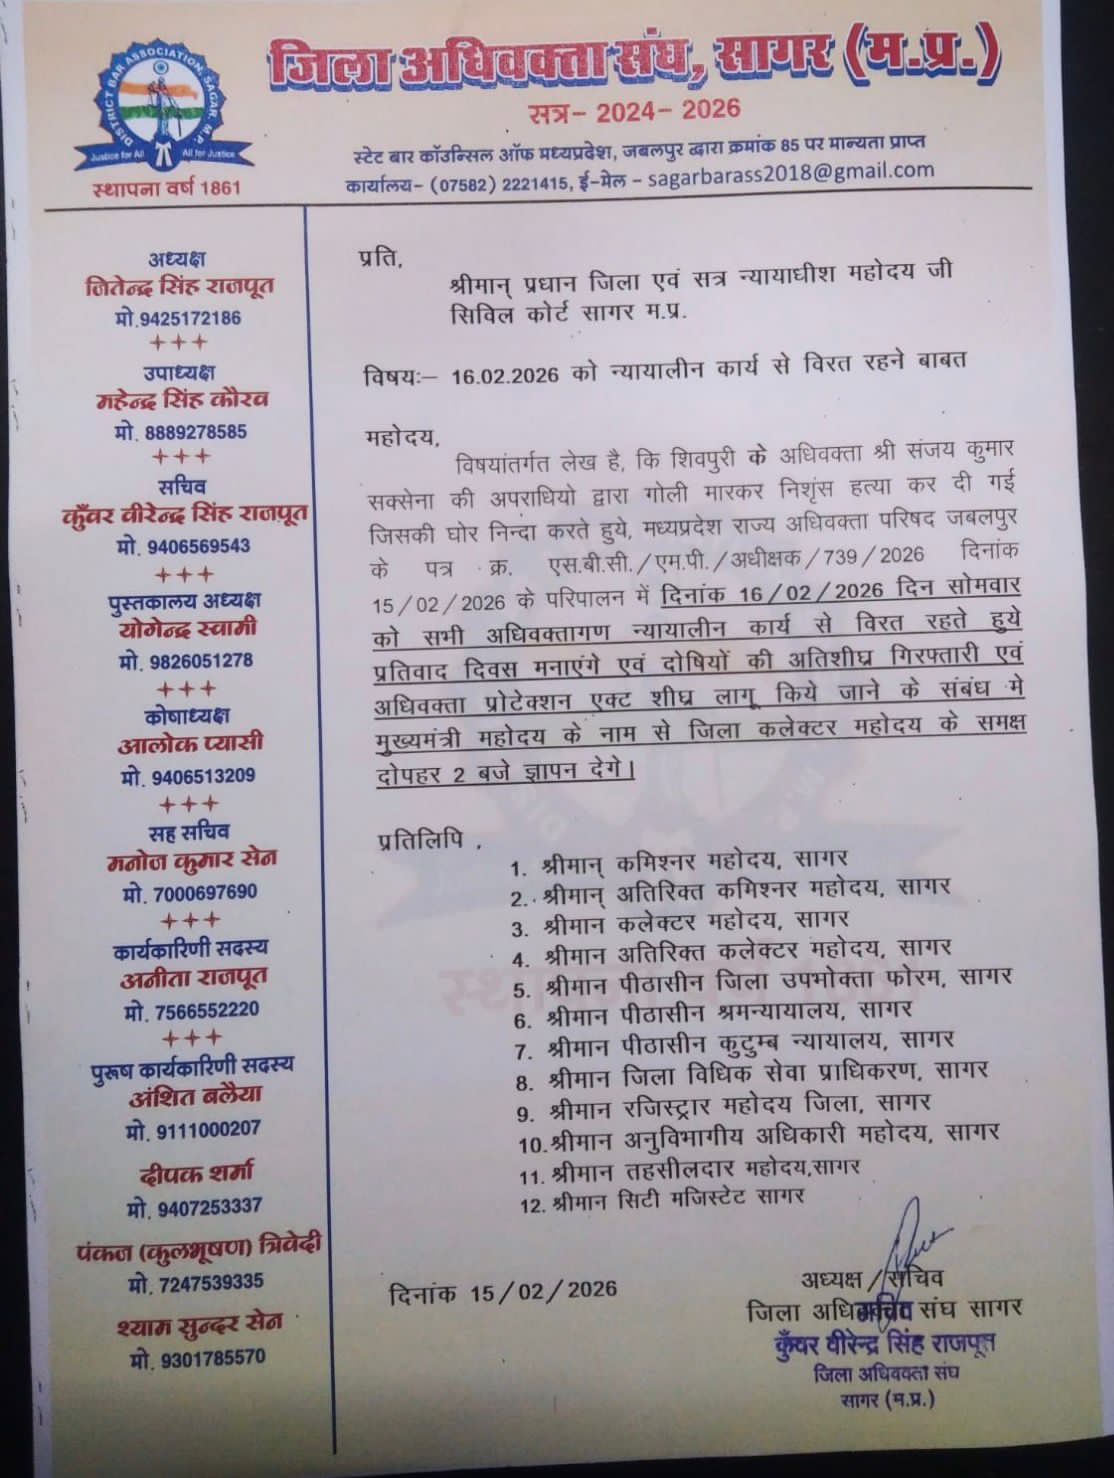 जिला अधिवक्ता संघ, सागर (म.प्र.)
सत्र- 2024- 2026
स्टेट बार कॉउन्सिल ऑफ मध्यप्रदेश, जबलपुर द्वारा क्रमांक 85 पर मान्यता प्राप्त
कार्यालय- (07582) 2221415, ई-मेल - sagarbarass2018@gmail.com
DISTRICT BAR ASSOCIATION, SAGAR, M.P.
Justice for All All for Justice
स्थापना वर्ष 1861
अध्यक्ष
जितेन्द्र सिंह राजपूत
मो.9425172186
उपाध्यक्ष
महेन्द्र सिंह कौरव
मो. 8889278585
सचिव
कुँवर वीरेन्द्र सिंह राजपूत
मो. 9406569543
पुस्तकालय अध्यक्ष
योगेन्द्र स्वामी
मो. 9826051278
कोषाध्यक्ष
आलोक प्यासी
मो. 9406513209
सह सचिव
मनोज कुमार सेन
मो. 7000697690
कार्यकारिणी सदस्य
अनीता राजपूत
मो. 7566552220
पुरूष कार्यकारिणी सदस्य
अंशित बलैया
मो. 9111000207
दीपक शर्मा
मो. 9407253337
पंकज (कुलभूषण) त्रिवेदी
मो. 7247539335
श्याम सुन्दर सेन
मो. 9301785570
प्रति,
श्रीमान् प्रधान जिला एवं सत्र न्यायाधीश महोदय जी
सिविल कोर्ट सागर म.प्र.
विषयः– 16.02.2026 को न्यायालीन कार्य से विरत रहने बाबत
महोदय,
विषयांतर्गत लेख है, कि शिवपुरी के अधिवक्ता श्री संजय कुमार
सक्सेना की अपराधियो द्वारा गोली मारकर निशृंस हत्या कर दी गई
जिसकी घोर निन्दा करते हुये, मध्यप्रदेश राज्य अधिवक्ता परिषद जबलपुर
के पत्र क्र. एस.बी.सी./एम.पी./अधीक्षक/739/2026 दिनांक
15/02/2026 के परिपालन में दिनांक 16/02/2026 दिन सोमवार
को सभी अधिवक्तागण न्यायालीन कार्य से विरत रहते हुये
प्रतिवाद दिवस मनाएंगे एवं दोषियों की अतिशीघ्र गिरफ्तारी एवं
अधिवक्ता प्रोटेक्शन एक्ट शीघ्र लागू किये जाने के संबंध मे
मुख्यमंत्री महोदय के नाम से जिला कलेक्टर महोदय के समक्ष
दोपहर 2 बजे ज्ञापन देगे।
प्रतिलिपि ,
1. श्रीमान् कमिश्नर महोदय, सागर
2. श्रीमान् अतिरिक्त कमिश्नर महोदय, सागर
3. श्रीमान कलेक्टर महोदय, सागर
4. श्रीमान अतिरिक्त कलेक्टर महोदय, सागर
5. श्रीमान पीठासीन जिला उपभोक्ता फोरम, सागर
6. श्रीमान पीठासीन श्रमन्यायालय, सागर
7. श्रीमान पीठासीन कुटुम्ब न्यायालय, सागर
8. श्रीमान जिला विधिक सेवा प्राधिकरण, सागर
9. श्रीमान रजिस्ट्रार महोदय जिला, सागर
10.श्रीमान अनुविभागीय अधिकारी महोदय, सागर
11. श्रीमान तहसीलदार महोदय,सागर
12. श्रीमान सिटी मजिस्टेट सागर
दिनांक 15/02/2026
अध्यक्ष/सचिव
जिला अधिवक्ता संघ सागर
सचिव
कुँवर वीरेन्द्र सिंह राजपूत
जिला अधिवक्ता संघ
सागर (म.प्र.)